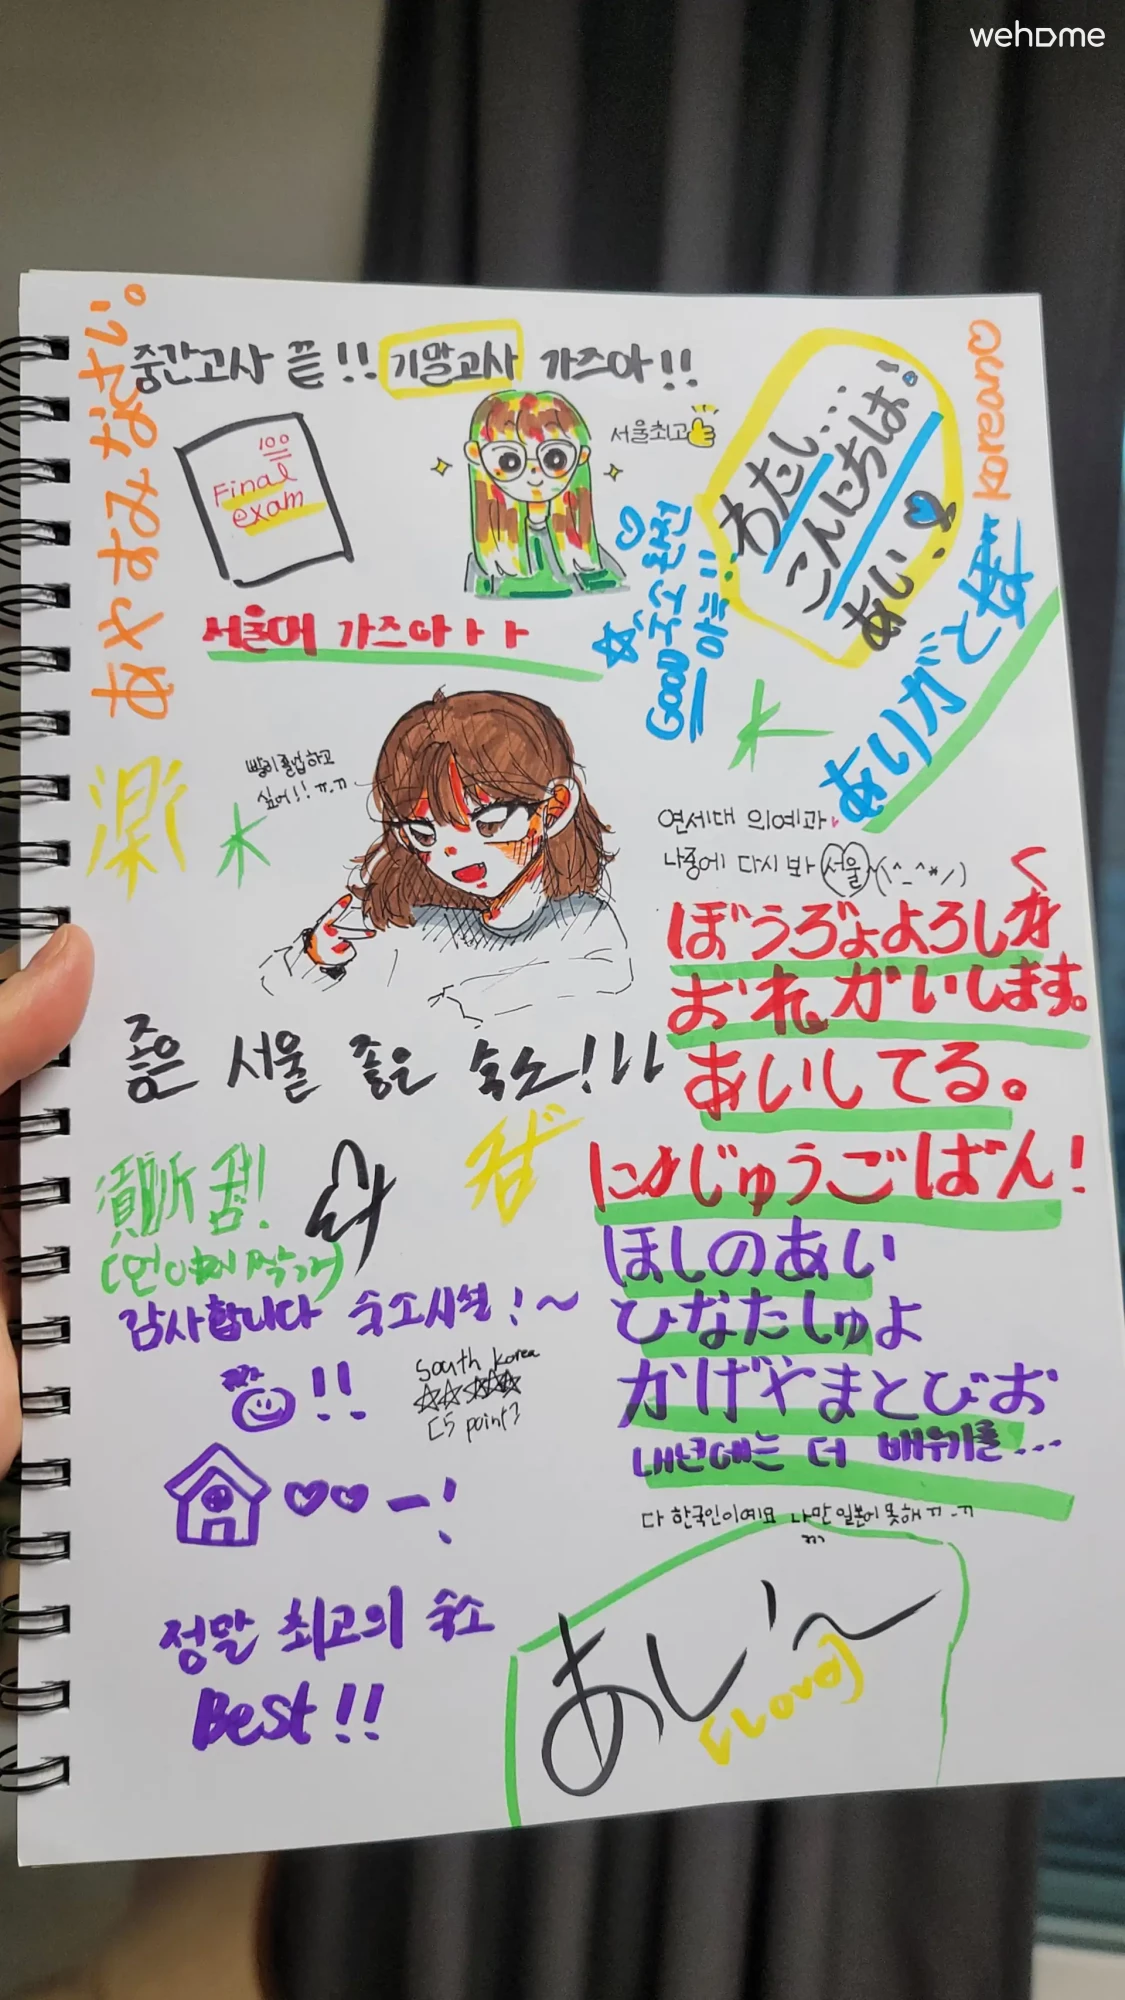 wehome
중간고사 끝!! 기말고사 가즈아!!
100
Final
exam
서울최고
わたし...
こんにちは!
あい.
Korean
あやすみなさい。
서울대 가즈아ㅏㅏ
Good 숙소 완전
아늑!!
ありがとま
빨리 졸업하고
싶어!! ㅠ.ㅠ
연세대 의예과
나중에 다시 봐 서울 \(^_^*/)
ぼうろよよろしか
おれがいします。
あいしてる。
좋은 서울 좋은 숙소!ㅏㅏ
にかじゅうごばん!
ほしのあい
ひなたしゅよ
かげやまとびお
감사합니다 숙소시설!~
!!
South Korea
[5 point]
내년에는 더 배우기를...
다 한국인이에요 나만 일본어 못해 ㅠ-ㅠ
정말 최고의 숙소
Best!!
[Love]